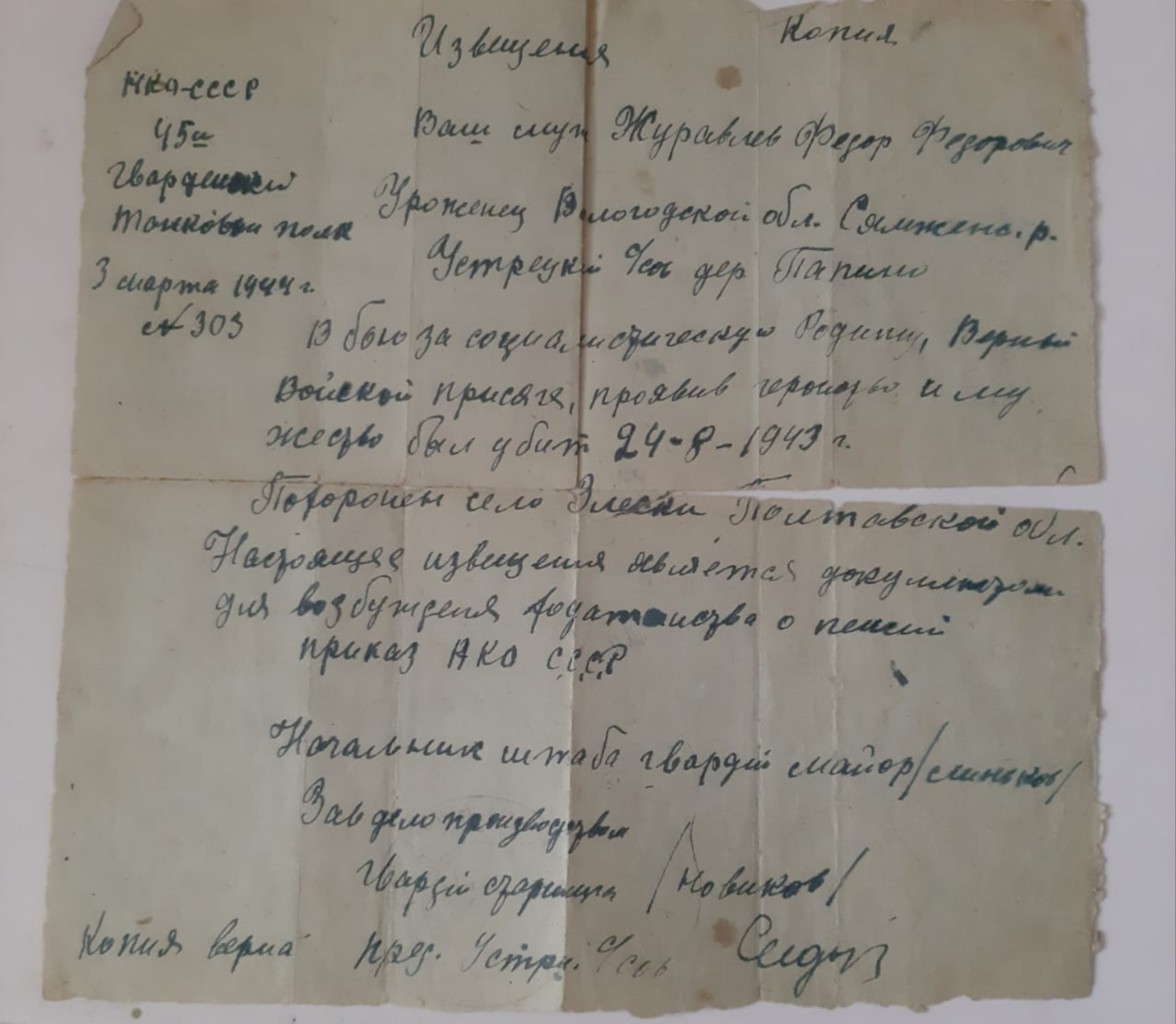 Извещения
Копия
НКО-СССР
45й
Гвардейский
Танковый полк
3 марта 1944 г.
№ 303
Ваш муж Журавлев Федор Федорович
Уроженец Вологодской обл. Сямженс. р.
Устрецкий с/сов дер Папино
В бою за социалистическую Родину, Верный
Войской присяге, проявив геройство и му
жество был убит 24-8-1943 г.
Похоронен село Полтавской обл.
Настоящее извещения является документом
для возбуждения ходатайства о пенсий
приказ НКО СССР
Начальник штаба гвардий майор /
Зав делопроизводством
Гвардий старшина /Новиков/
Копия верна Пред. Устрец. с/сов